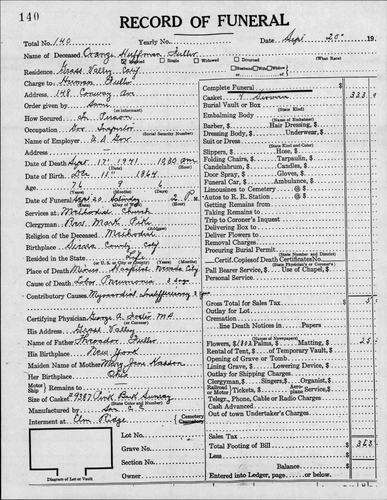 140
RECORD OF FUNERAL
Total No. 140 Yearly No. Date Sept. 20 19
Name of Deceased Orange Huffman Fuller
Married Single Widowed Divorced (What Race)
Residence Grass Valley Calif
Charge to Herman Fuller
Address 148 Conway Av
Order given by Same
(or informant)
How Secured In Person
Occupation Gov Inspector
(Social Security Number)
Name of Employer U S Gov
Date of Death Sept 17 1941 10:30 AM
Date of Birth Dec 11 1864
Age 76 9 6
(Years) (Months) (Days)
Date of Funeral Sept 20 Saturday 2 P M
Services at Methodist Church
Clergyman Rev. Mark
Religion of the Deceased Methodist
Birthplace Sierra County Calif
Resided in the State Life
(U. S. or City or County)
Place of Death Miners Hospital Nevada City
Cause of Death Lobar Pneumonia
Contributory Causes Myocardial Insufficiency
Certifying Physician George A. Foster M D
(or Coroner)
His Address Grass Valley
Name of Father Theodor Fuller
His Birthplace New York
Maiden Name of Mother Mary Jane
Her Birthplace Ohio
Motor Ship Remains to
Size of Casket
(State Color and Number)
Manufactured by
Interment at Elm Ridge Cemetery
Diagram of Lot or Vault
Lot No.
Grave No.
Section No.
Owner
Complete Funeral
Casket 323
Burial Vault or Box
(State Kind)
Embalming Body
(Name of Embalmer)
Barber, $ Hair Dressing, $
Dressing Body, $ Underwear, $
Suit or Dress
(State Kind and Color)
Slippers, $ Hose, $
Folding Chairs, $ Tarpaulin, $
Candelabrum, $ Candles, $
Door Spray, $ Gloves, $
Funeral Car, $ Ambulance, $
Limousines to Cemetery @ $
Autos to R. R. Station @ $
Getting Remains from
Taking Remains to
Trip to Coroner's Inquest
Delivering Box to
Deliver Flowers to
Removal Charges
(State Number and District)
Procuring Burial Permit
Certif. Copies of Death Certificate No.
(State Physician's or Coroner's)
Pall Bearer Service, $ Use of Chapel, $
Personal Service
Gross Total for Sales Tax
Outlay for Lot
Cremation
line Death Notices in Papers
(Names of Newspapers)
Flowers, $ Palms, $ Matting, $ 25
Rental of Tent, $ of Temporary Vault, $
Opening of Grave or Tomb
Lining Grave, $ Lowering Device, $
Outlay for Shipping Charges
Clergyman, $ Singers, $ Organist, $
Railroad Tickets, $ Aeroplane Service, $
Telegr., Phone, Cable or Radio Charges
Cash Advanced
Out of town Undertaker's Charges
Sales Tax
Total Footing of Bill $ 363
Less
Balance
Entered into Ledger, page or below.